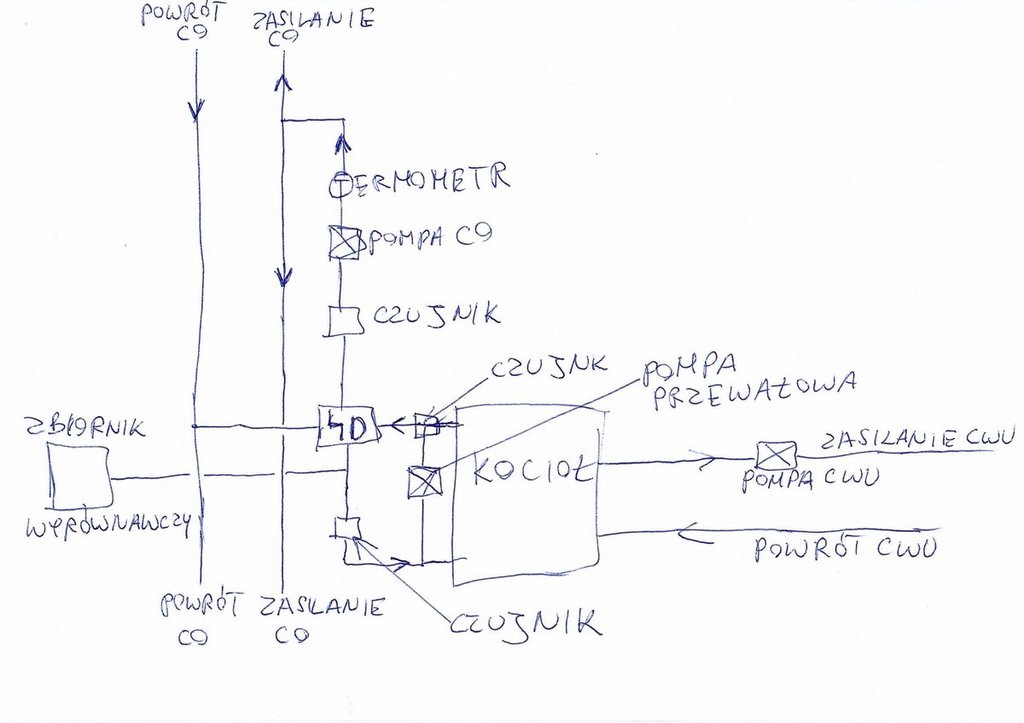 POWRÓT
CO
ZASILANIE
CO
TERMOMETR
POMPA CO
CZUJNIK
CZUJNK
POMPA
PRZEWAŁOWA
4D
ZBIORNIK
WYRÓWNAWCZY
KOCIOŁ
ZASILANIE CWU
POMPA CWU
POWRÓT CWU
POWRÓT
CO
ZASILANIE
CO
CZUJNIK